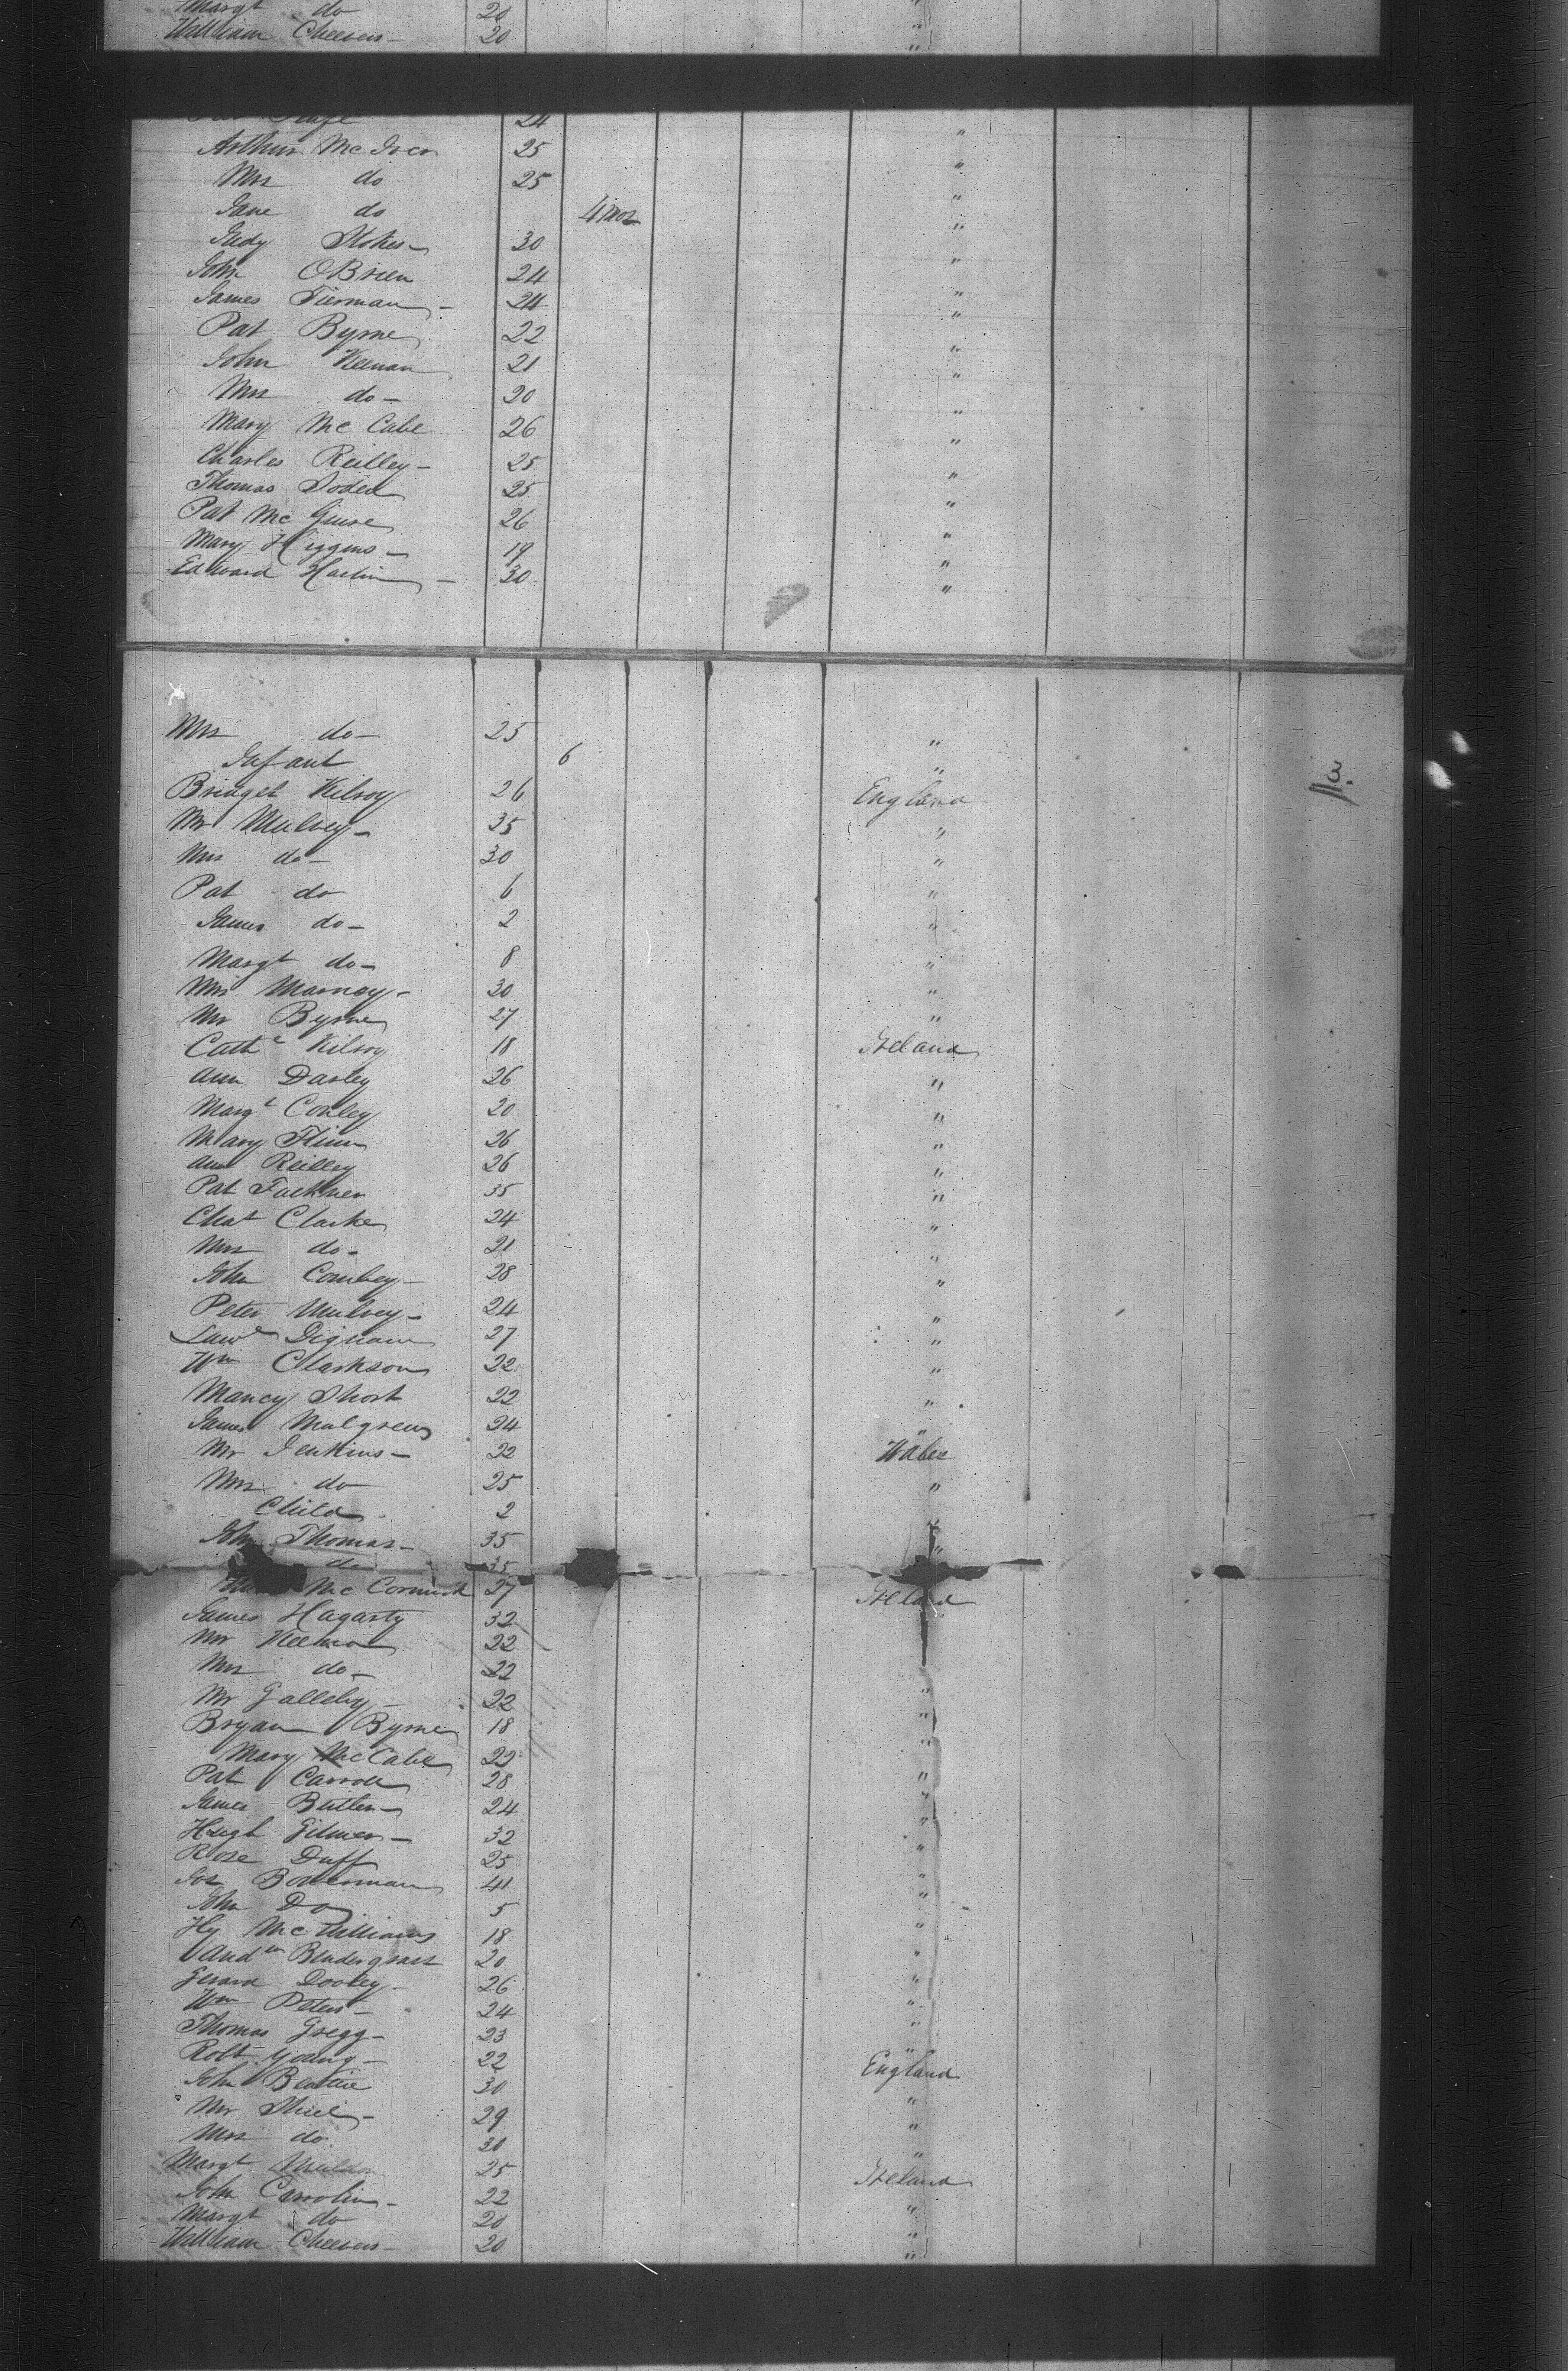 Margt do 20 "
William Cheevers - 20 "
24 "
Arthur Mc Iver 25 "
Mrs do 25 "
Jane do 4 mos "
Judy Stokes - 30 "
John OBrien 24 "
James Tiernan - 24 "
Pat Byrne 22 "
John Keenan 21 "
Mrs do - 20 "
Mary Mc Cabe 26 "
Charles Reilley - 25 "
Thomas Soden 25 "
Pat Mc Guire 26 "
Mary Higgins - 19 "
Edward Harlin - 30 "
Mrs do - 25 "
Infant 6 "
Bridget Kilroy 26 England
Mr Mulvey - 35 "
Mrs do - 30 "
Pat do 6 "
James do - 2 "
Margt do - 8 "
Mrs Marney - 30 "
Mr Byrne 27 "
Cathe Kilroy 18 Ireland
Ann Darley 26 "
Margt Conley 20 "
Mary Flinn 26 "
Ann Reilley 26 "
Pat Fackner 35 "
Chat Clarke 24 "
Mrs do - 21 "
John Conley - 28 "
Peter Mulvey - 24 "
Lawe Dignam 27 "
Wm Clarkson 22 "
Nancy Short 22 "
James Mulgrew 24 "
Mr Jenkins - 22 Wales
Mrs do 25 "
Child 2 "
John Thomas - 35 "
do 35
Mc Cormick 27 Ireland
James Hagarty 32
Mr Keenan 22
Mrs do - 22 "
Mr Galleby - 22 "
Bryan Byrne 18 "
Mary McCabe 22 "
Pat Carroll 28 "
James Butler - 24 "
Hugh Gilmer - 32 "
Rose Duff 25 "
Jos Bowerman 41 "
John Do 5 "
Hy McWilliams 18 "
Andw Bendergrast 20 "
Gerard Dooley - 26 "
Wm Peters - 24 "
Thomas Gregg - 23 "
Robt Young - 22 England
John Beattie 30 "
Mr Shiel - 29 "
Mrs do 30 "
Margt Muldon 25 Ireland
John Carrolin - 22 "
Margt do 20 "
William Cheevers - 20 "